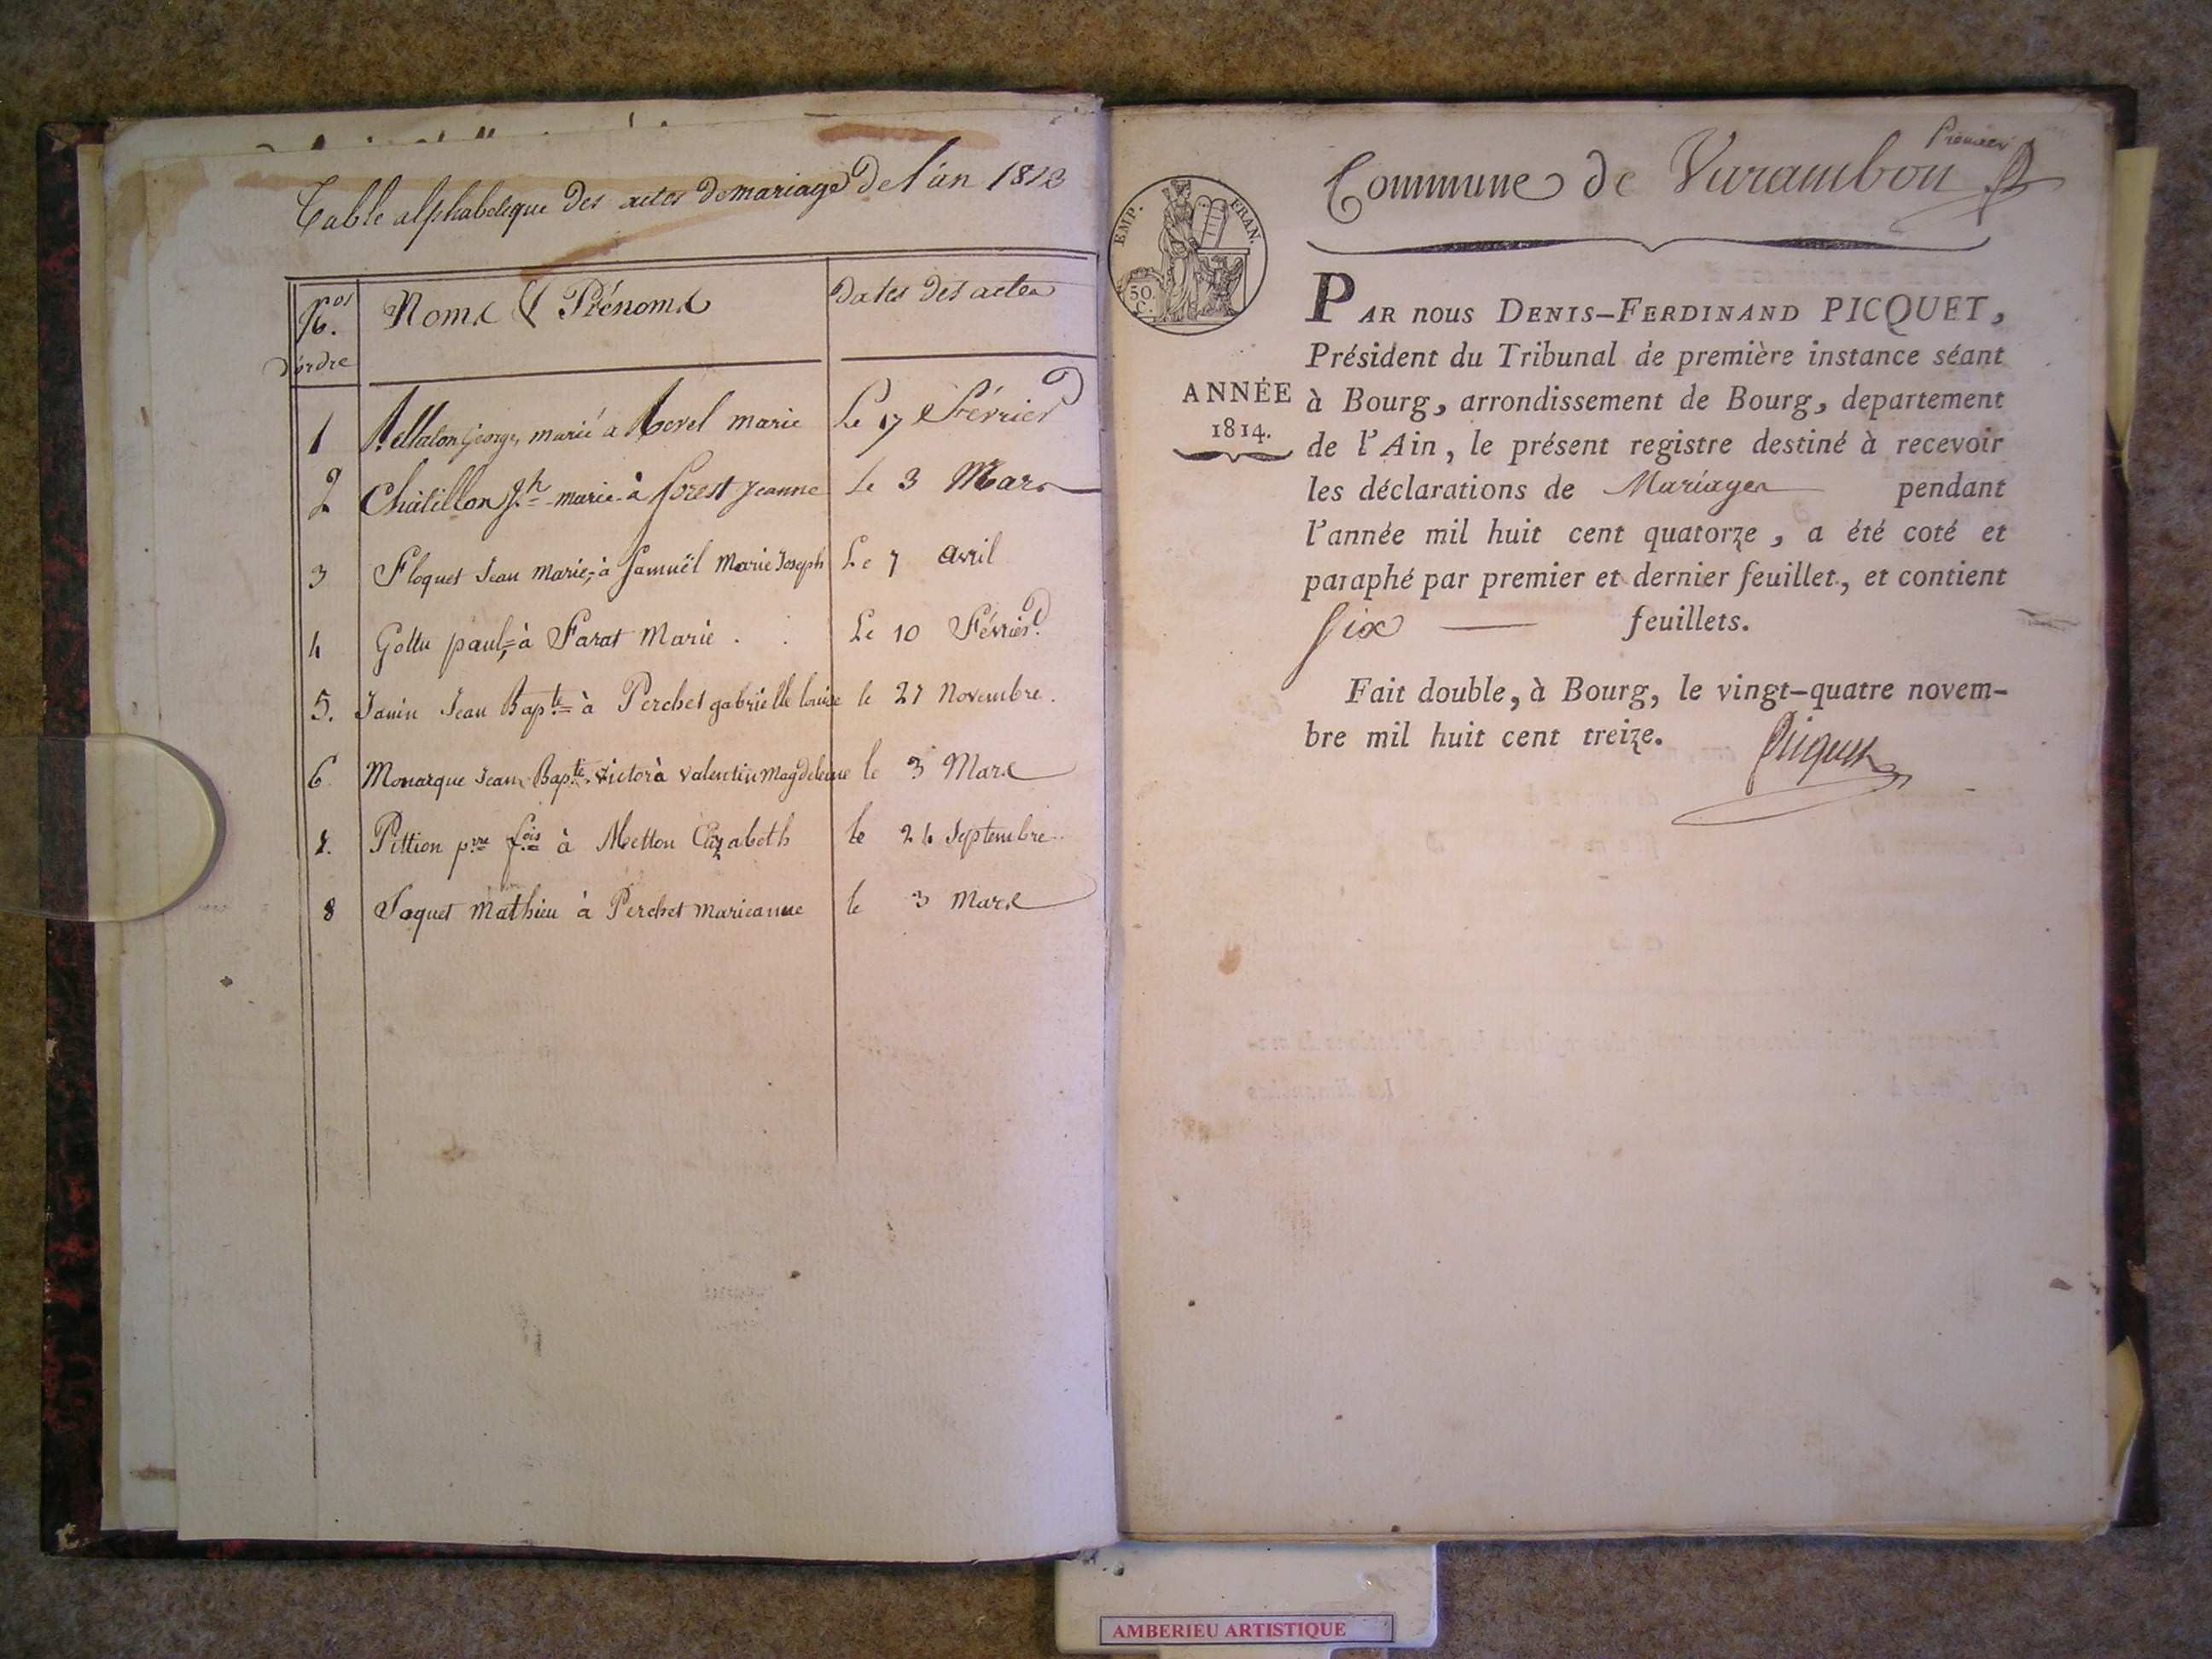 Table alphabetique des actes de mariage de l'an 1813
N.os d'ordre
Noms & Prénoms
Dates des actes
1 Georges marié à Revel marie Le 17 Février
2 Châtillon Jh marié à forest Jeanne Le 3 Mars
3 Floquet Jean Marie, à Samuël Marie Joseph Le 7 avril
4 Gottu paul, à Farat Marie . . Le 10 Février
5. Janin Jean Bapte à Perchet gabrielle louise le 27 Novembre.
6 Monarque Jean Bapte victor à valentin Magdeleine le 3 Mars
7. Pittion prre fois à Metton Elizabeth le 24 Septembre
8 Joquet Mathieu à Perchet Marieanne le 3 Mars
Premier
Commune de Varambon
EMP. FRAN.
50. C.
ANNÉE
1814.
PAR nous DENIS-FERDINAND PICQUET,
Président du Tribunal de première instance séant
à Bourg, arrondissement de Bourg, departement
de l'Ain, le présent registre destiné à recevoir
les déclarations de Mariages pendant
l'année mil huit cent quatorze, a été coté et
paraphé par premier et dernier feuillet, et contient
six feuillets.
Fait double, à Bourg, le vingt-quatre novem-
bre mil huit cent treize.
Picquet
AMBERIEU ARTISTIQUE